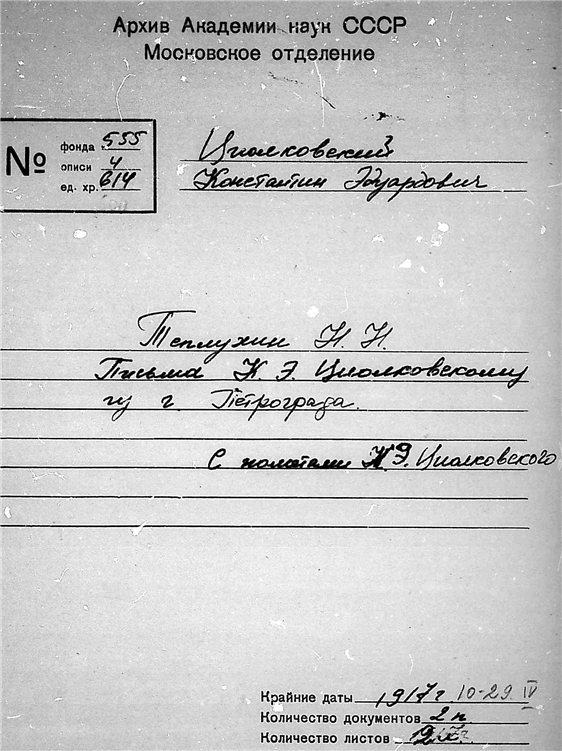 Архив Академии наук СССР
Московское отделение
№
фонда 555
описи 4
ед. хр. 614
Циолковский
Константин Эдуардович
Теплухин Н. Н.
Письма К. Э. Циолковскому
из г. Петрограда.
С пометами К.Э. Циолковского
Крайние даты 1917г 10-29 IV
Количество документов 2 п
Количество листов